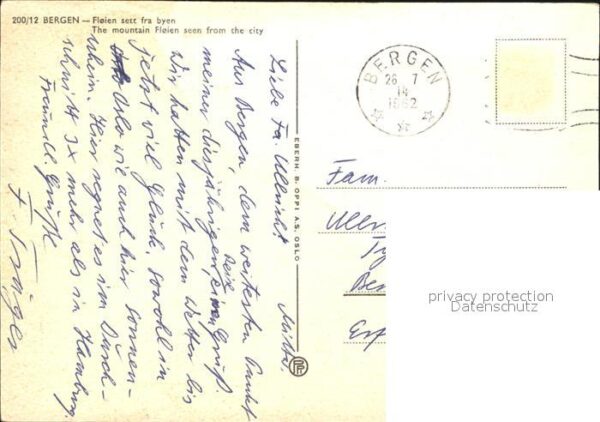 200/12 BERGEN — Fløien sett fra byen
The mountain Fløien seen from the city
Liebe Fa. Ullrich!
Aus Bergen, dem weitesten Punkt
meiner diesjährigen Reise, einen Gruß.
Wir hatten mit dem Wetter bis
jetzt viel Glück. Sowohl in
Oslo wie auch hier Sonnen-
schein. Hier regnet es im Durch-
schnitt 3x mehr als in Hamburg.
Freundl. Grüße
F.
EBERH. B. OPPI A.S. OSLO
BERGEN
26 7
14
1962
Fam.
Ullr
privacy protection
Datenschutz